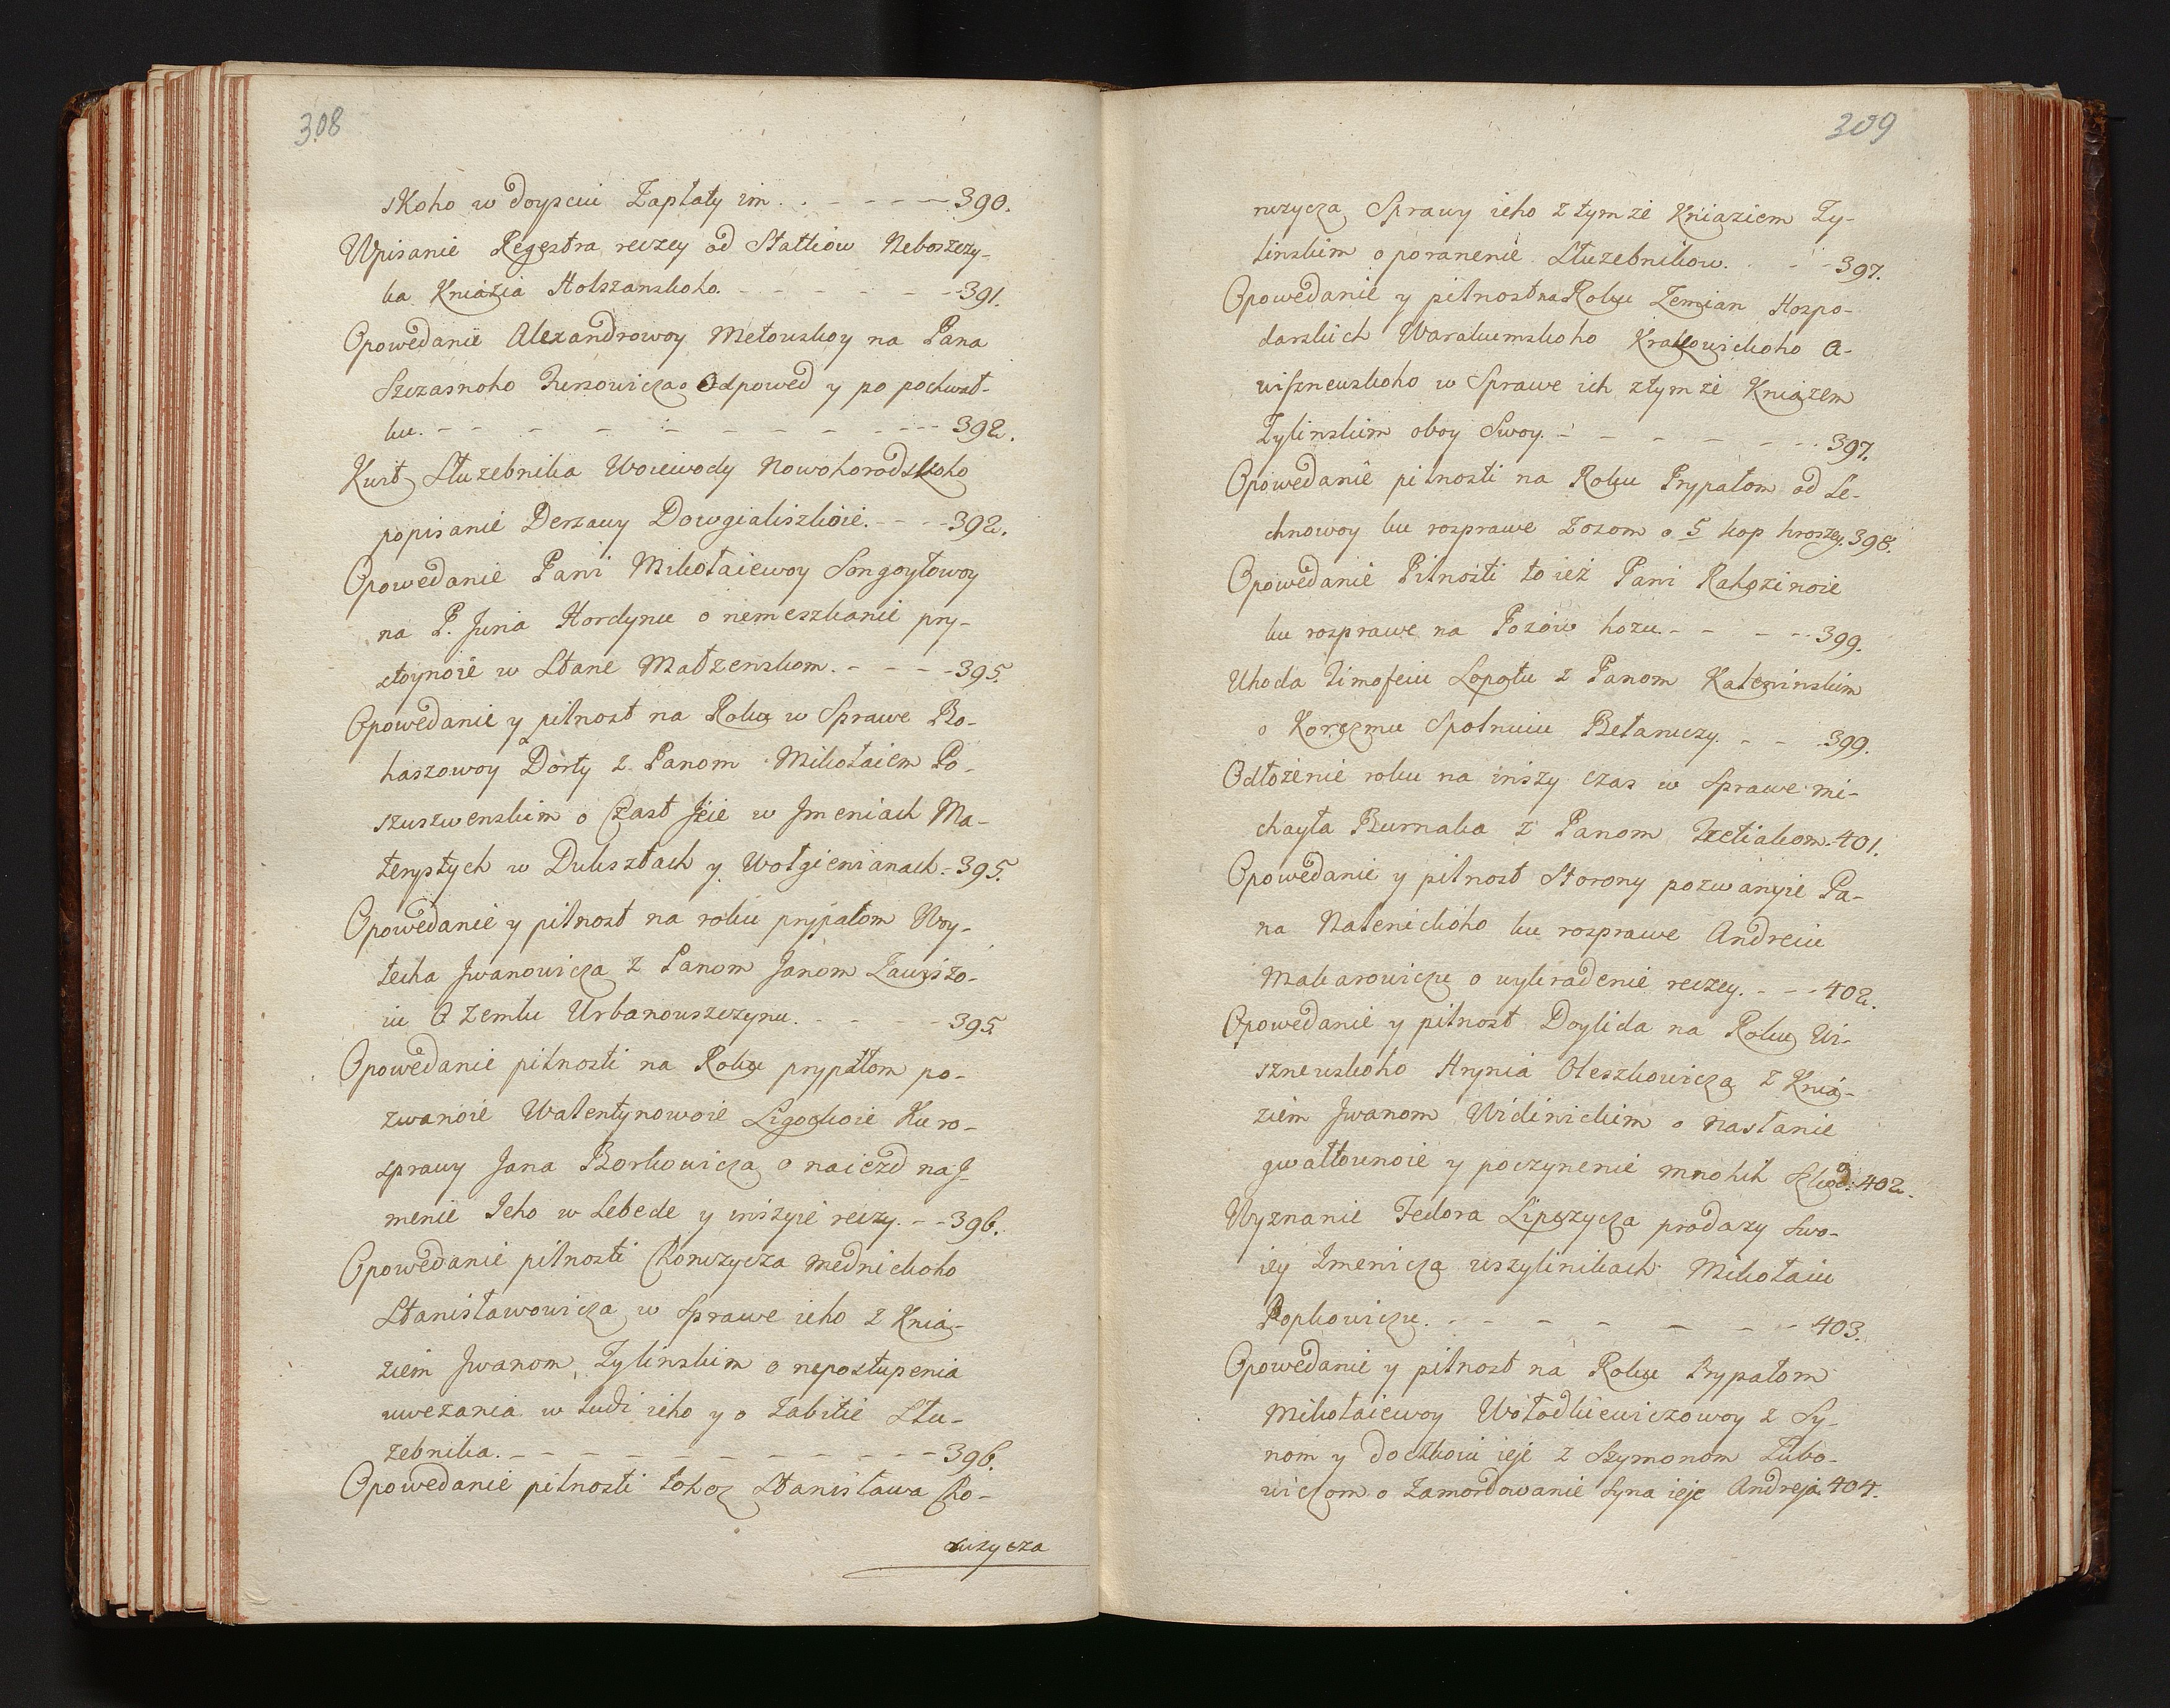 308
skoho w doyściu Zapłaty im. . - - - - - 390.
Wpisanie Regestra reczey od Statkow Neboszczy-
ka Kniazia Holszanskoho. - - - - - - 391.
Opowedanie Alexandrowoy Metouskoy na Pana
Szczasnoho o Odpowed y po pochwał-
ku. - - - - - - - - - - 392.
Kwit Służebnika Woiewody Nowohorodskoho
popisanie Derzawy Dowgialiszkoie. - - - 392.
Opowedanie Pani Mikołaiewoy Songoyłowoy
na P. Juria Hordynu o nemeszkanie pry-
stoynoie w Stane Małzenskom. - - - - 395.
Opowedanie y pilnost na Roku w Sprawe Bo-
haszowoy Dorty z Panom Mikołaiem Po-
szuszwenskim o Czast Jeie w Jmeniach Ma-
terystych w Duksztach y Wołgienianach - 395.
Opowedanie y pilnost na roku prypałom Woy-
techa Jwanowicza z Panom Janom Zawiszo-
iu O Zemlu Urbanouszczynu. - - - - 395.
Opowedanie pilnosti na Roku prypałom po-
zwanoie Walentynowoie Ligockoie Ku ro-
sprawy Jana Borkowicza o naiezd na J-
menie Jeho w Lebede y inszyie reczy. - - 396.
Opowedanie pilnosti Chonczycza mednickoho
Stanisławowicza w Sprawe ieho z Knia-
ziem Jwanom Żylinskim o nepostupenia
uwezania w ludi ieho y o Zabitie Słu-
żebnika. - - - - - - - - - - 396.
Opowedanie pilnosti tohoz Stanisława Cho-
nczycza
309
nczycza Sprawy ieho z tym że Kniaziem Ży-
linskim o poranenie Służebnikow. - - 397.
Opowedanie y pilnost na Roku Zemian Hospo-
darskich Warakumskoho Krakowickoho a-
wiszneuskoho w Sprawe ich z tym że Kniazem
Żylinskim oboy Swoy. - - - - - - 397.
Opowedanie pilnosti na Roku Prypałom od Le-
chnowoy ku rosprawe Zozom o 5 kop hroszey. 398.
Opowedanie Pilnosti to ież Pani Rahozinoie
ku rosprawe na Pozow hozu. - - - - 399.
Uhoda Timofeiu Łopotu z Panom Kaleninskim
o Korczmu Spolnuiu Betanuczy. - - 399.
Odłożenie roku na inszy czas w Sprawe mi-
chayła Burnaka z Panom Tretiakom. 401.
Opowedanie y pilnost Storony pozwanyie Pa-
na Nalenickoho ku rosprawe Andreiu
Makarowiczu o wykradenie reczey. - - - 402.
Opowedanie y pilnost Doylida na Roku Wi-
szneuskoho Hrynia Oleszkowicza z Knia-
ziem Jwanom Widinickim o nasłanie
gwałtounoie y poczynenie mnohih Szkod: 402.
Wyznanie Fedora Lipszycza prodazy Swo-
iey Jmenicza Mikołaiu
Popkowiczu. - - - - - - - - 403.
Opowedanie y pilnost na Roku Prypałom
Mikołaiewoy Wołodkiewiczowoy z Sy-
nom y dockoiu ieie z Szymonom Lubo-
wiczom o Zamordowanie Syna ieie Andreja. 404.